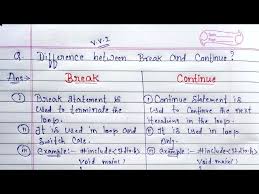 V.V.I
Q. Difference between Break and Continue?
Ans:→ Break Continue
(i) Break statement is used to terminate the loop.
(i) Continue statement is used to continue the next iteration in the loop.
(ii) It is used in loop and switch case.
(ii) It is used in loop only.
(iii) Example:- #include<stdio.h>
void main()
(iii) Example:- #include<stdio.h>
void main()